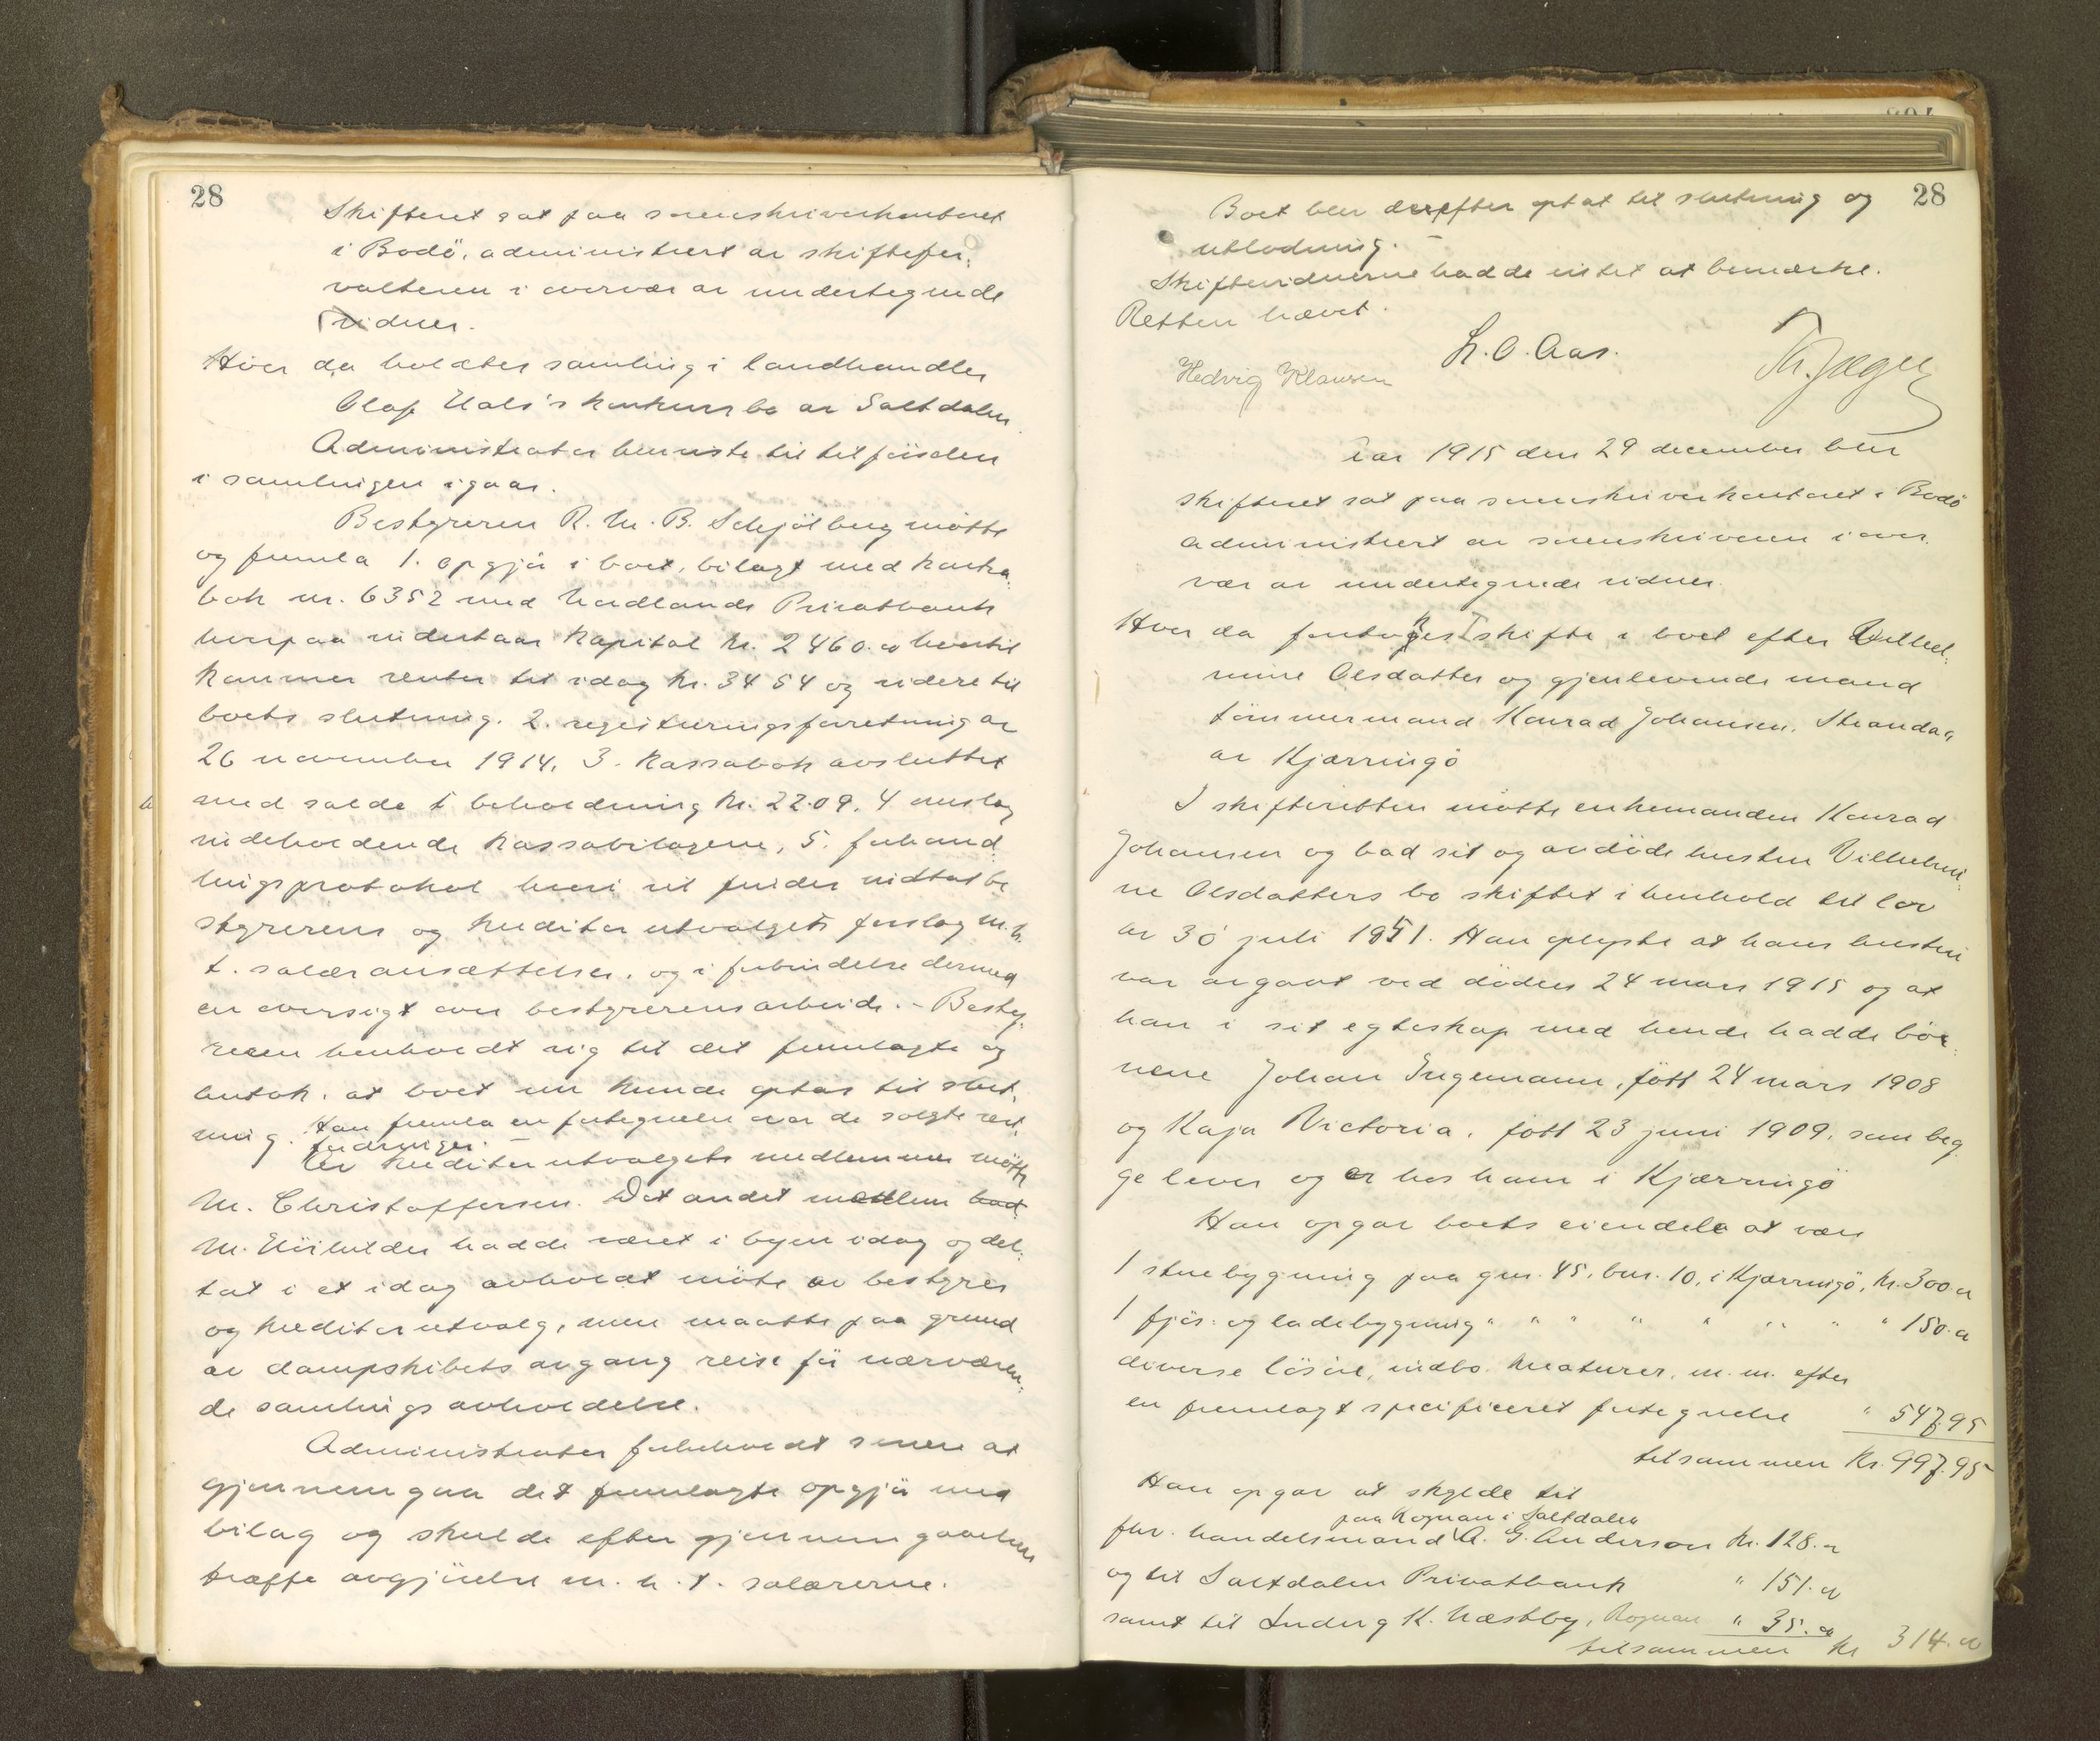 28
Skifteret sat paa sorenskriverkontoret
i Bodö, administrert av skiftefor-
valteren i overvær av undertegnede
vidner.
Hvor da holdtes samling i landhandler
Olaf Hals's konkursbo av Saltdalen
Administrator henviste til tilförselen
i samlingen igaar.
Bestyreren R. M. B. Schjölberg mötte
og fremla 1. opgjör i boet, bilagt med kontra-
bok nr. 6352 med Nordlands Privatbank
hvorpaa indestaar kapital kr. 2460.00 hvortil
kommer renter til idag kr. 34 54 og videre til
boets slutning. 2. registreringsforretning av
26 november 1914, 3. Kassabok avsluttet
med saldo i beholdning kr. 22.09. 4 omslag
indeholdende kassabilagene, 5. forhand-
lingsprotokol hvori vil findes indtat be
styrerens og kreditorutvalgets forslag m.h.
t. salæransættelser, og i forbindelse dermed
en oversigt over bestyrerens arbeide. - Besty-
reren henholdt sig til det fremlagte og
antok, at boet nu kunde optas til slut-
ning. Han fremla en fortegnelse over de solgte rest-
fordringer. -
Av kreditorutvalgets medlemmer mötte
M. Christoffersen. Det andet medlem
M. hadde været i byen idag og del-
tat i et idag avholdt möte av bestyrer
og kreditorutvalg, men maatte paa grund
av dampskibets avgang reise för nærværen-
de samlings avholdelse.
Administrator forbeholdt senere at
gjennemgaa det fremlagte opgjör med
bilag og skulde efter gjennemgaaelsen
træffe avgjörelse m. h. t. salærerne.
28
Boet blev derefter optat til slutning og
utlodning. -
Skiftevidnerne hadde intet at bemerke.
Retten hævet.
L. O. Aas.
Hedvig Klausen
Th. Jæger
Aar 1915 den 29 december blev
skifteret sat paa sorenskriverkontoret i Bodö
administrert av sorenskriveren i over-
vær av undertegnede vidner.
Hvor da foretoges skifte i boet efter Vilhel-
mine Olsdatter og gjenlevende mand
tömmermand Konrad Johansen, Strandaa
av Kjærringö
I skifteretten mötte enkemanden Konrad
Johansen og bad sit og avdöde hustru Vilhelmi-
ne Olsdatters bo skiftet i henhold til lov
av 30 juli 1851. Han oplyste at hans hustru
var avgaat ved döden 24 mars 1915 og at
han i sit egteskap med hende hadde bör-
nene Johan Ingemann, födt 24 mars 1908
og Kaja Victoria, födt 23 juni 1909, som beg
ge lever og er hos ham i Kjærringö
Han opgav boets eiendele at være
1 stuebygning paa gnr. 45, bnr. 10, i Kjærringö, kr. 300.00
1 fjös- og ladebygning " " " " " " " " 150.00
diverse lösöre, indbo, kreaturer, m. m. efter
en fremlagt specificeret fortegnelse " 547.95
tilsammen Kr. 997.95
Han opgav at skylde til
paa Rognan i Saltdalen
fhv. handelsmand A. G. Anderson kr. 128.00
og til Saltdalen Privatbank " 151.00
samt til Ludvig K. Næstby, Rognan " 35.00
tilsammen kr 314.00